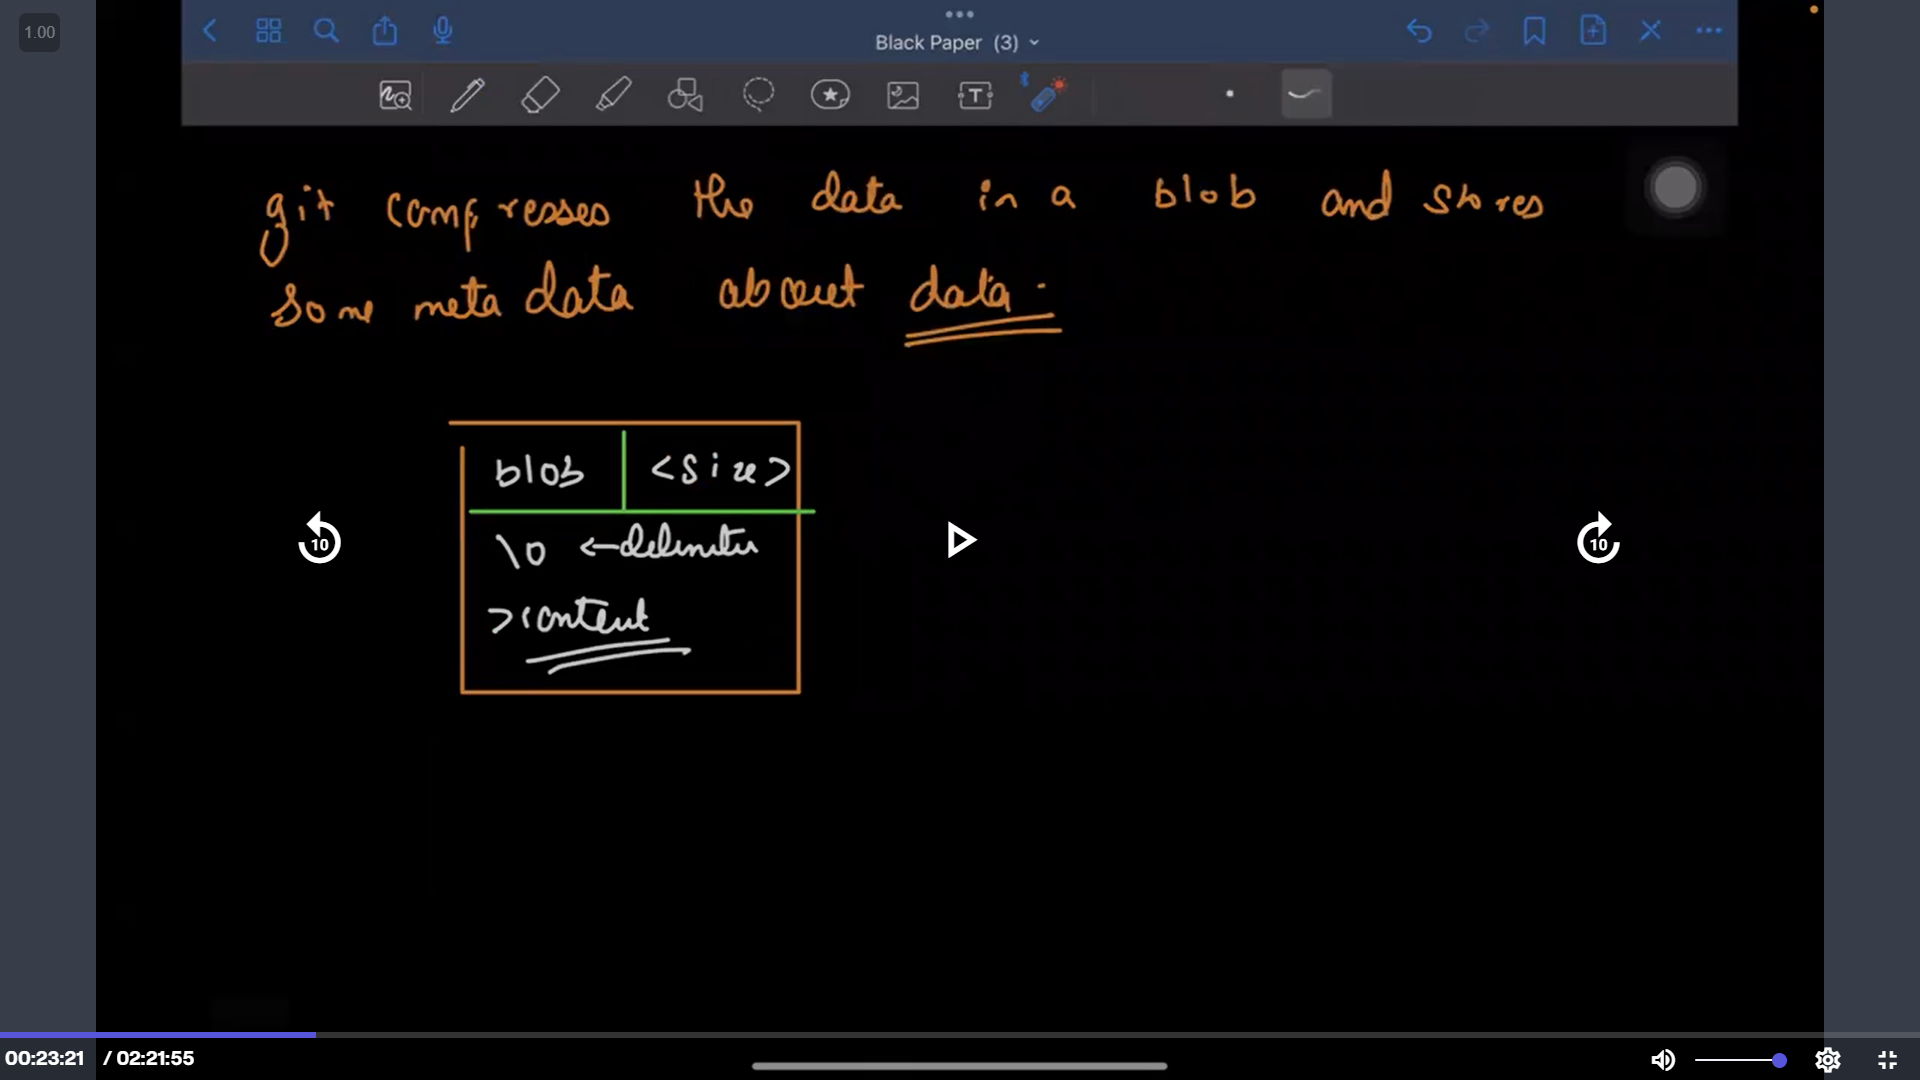 1.00
Black Paper (3)
git compresses the data in a blob and stores
some meta data about data.
blob <size>
\0 ←delimiter
>content
10
10
00:23:21 / 02:21:55